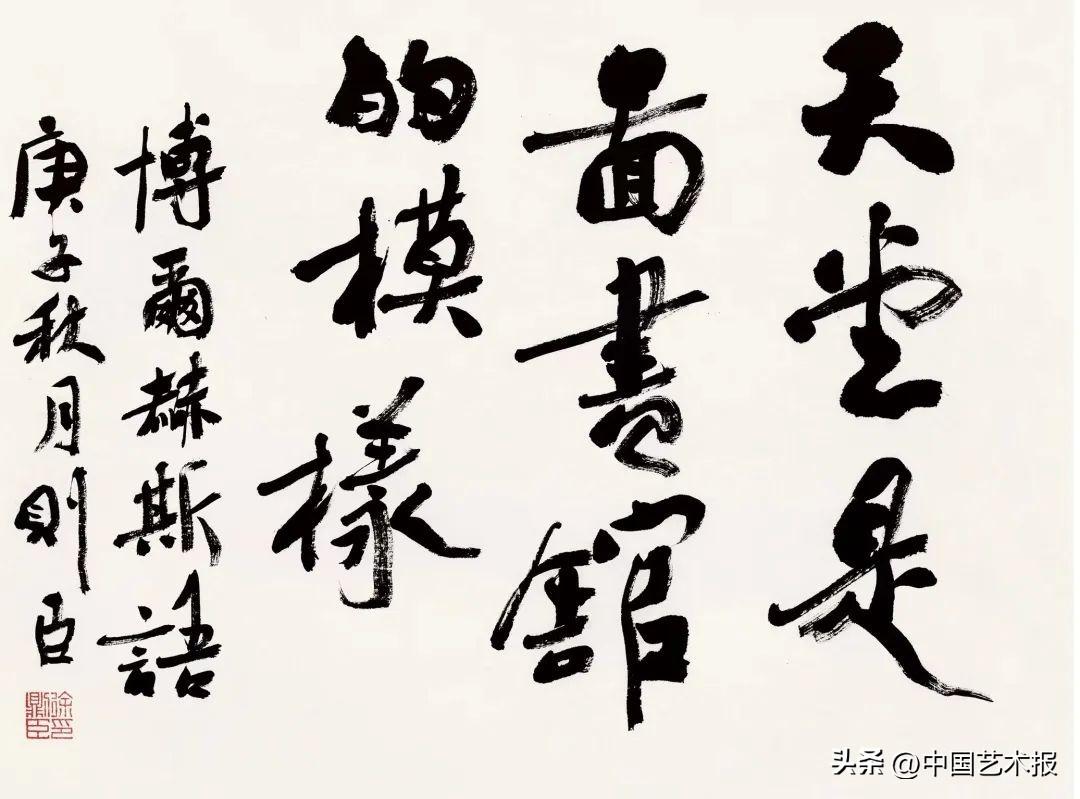 天堂是
圖書館
的模樣
博爾赫斯語
庚子秋月則臣
头条 @中国艺术报